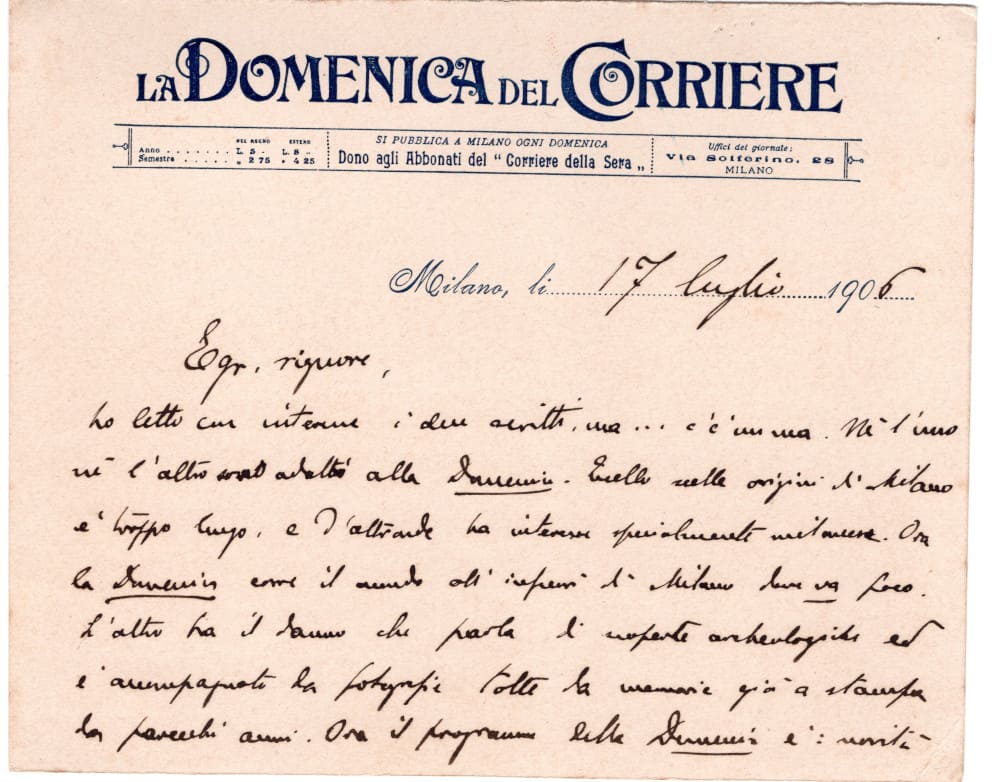 LA DOMENICA DEL CORRIERE
NEL REGNO ESTERO
Anno . . . . . . . L. 5 - L. 8 -
Semestre . . . . . . . „ 2 75 „ 4 25
SI PUBBLICA A MILANO OGNI DOMENICA
Dono agli Abbonati del “ Corriere della Sera „
Uffici del giornale:
Via Solferino, 28
MILANO
Milano, li 17 luglio 1906
Egr. signore,
ho letto con interesse i due scritti, ma... c'è un ma. Nè l'uno
nè l'altro sono adatti alla Domenica. Quello sulle origini di Milano
è troppo lungo, e d'altronde ha interesse specialmente milanese. Ora
la Domenica corre il mondo all' di Milano dove va poco.
L'altro ha il danno che parla di scoperte archeologiche ed
è accompagnato da fotografie tolte da memorie già a stampa
da parecchi anni. Ora il programma della Domenica è: novità